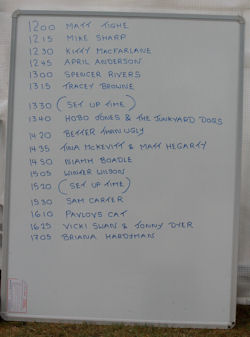 1200 MATT TIGHE
1215 MIKE SHARP
1230 KITTY MACFARLANE
1245 APRIL ANDERSON
1300 SPENCER RIVERS
1315 TRACEY BROWNE
1330 (SET UP TIME)
1340 HOBO JONES & THE JUNKYARD DOGS
1420 BETTER THAN UGLY
1435 TINA MCKEVITT & MATT HEGARTY
1450 NIAMH BOADLE
1505 WINTER WILSON
1520 (SET UP TIME)
1530 SAM CARTER
1610 PAVLOVS CAT
1625 VICKI SWAN & JONNY DYER
1705 BRIANA HARDYMAN